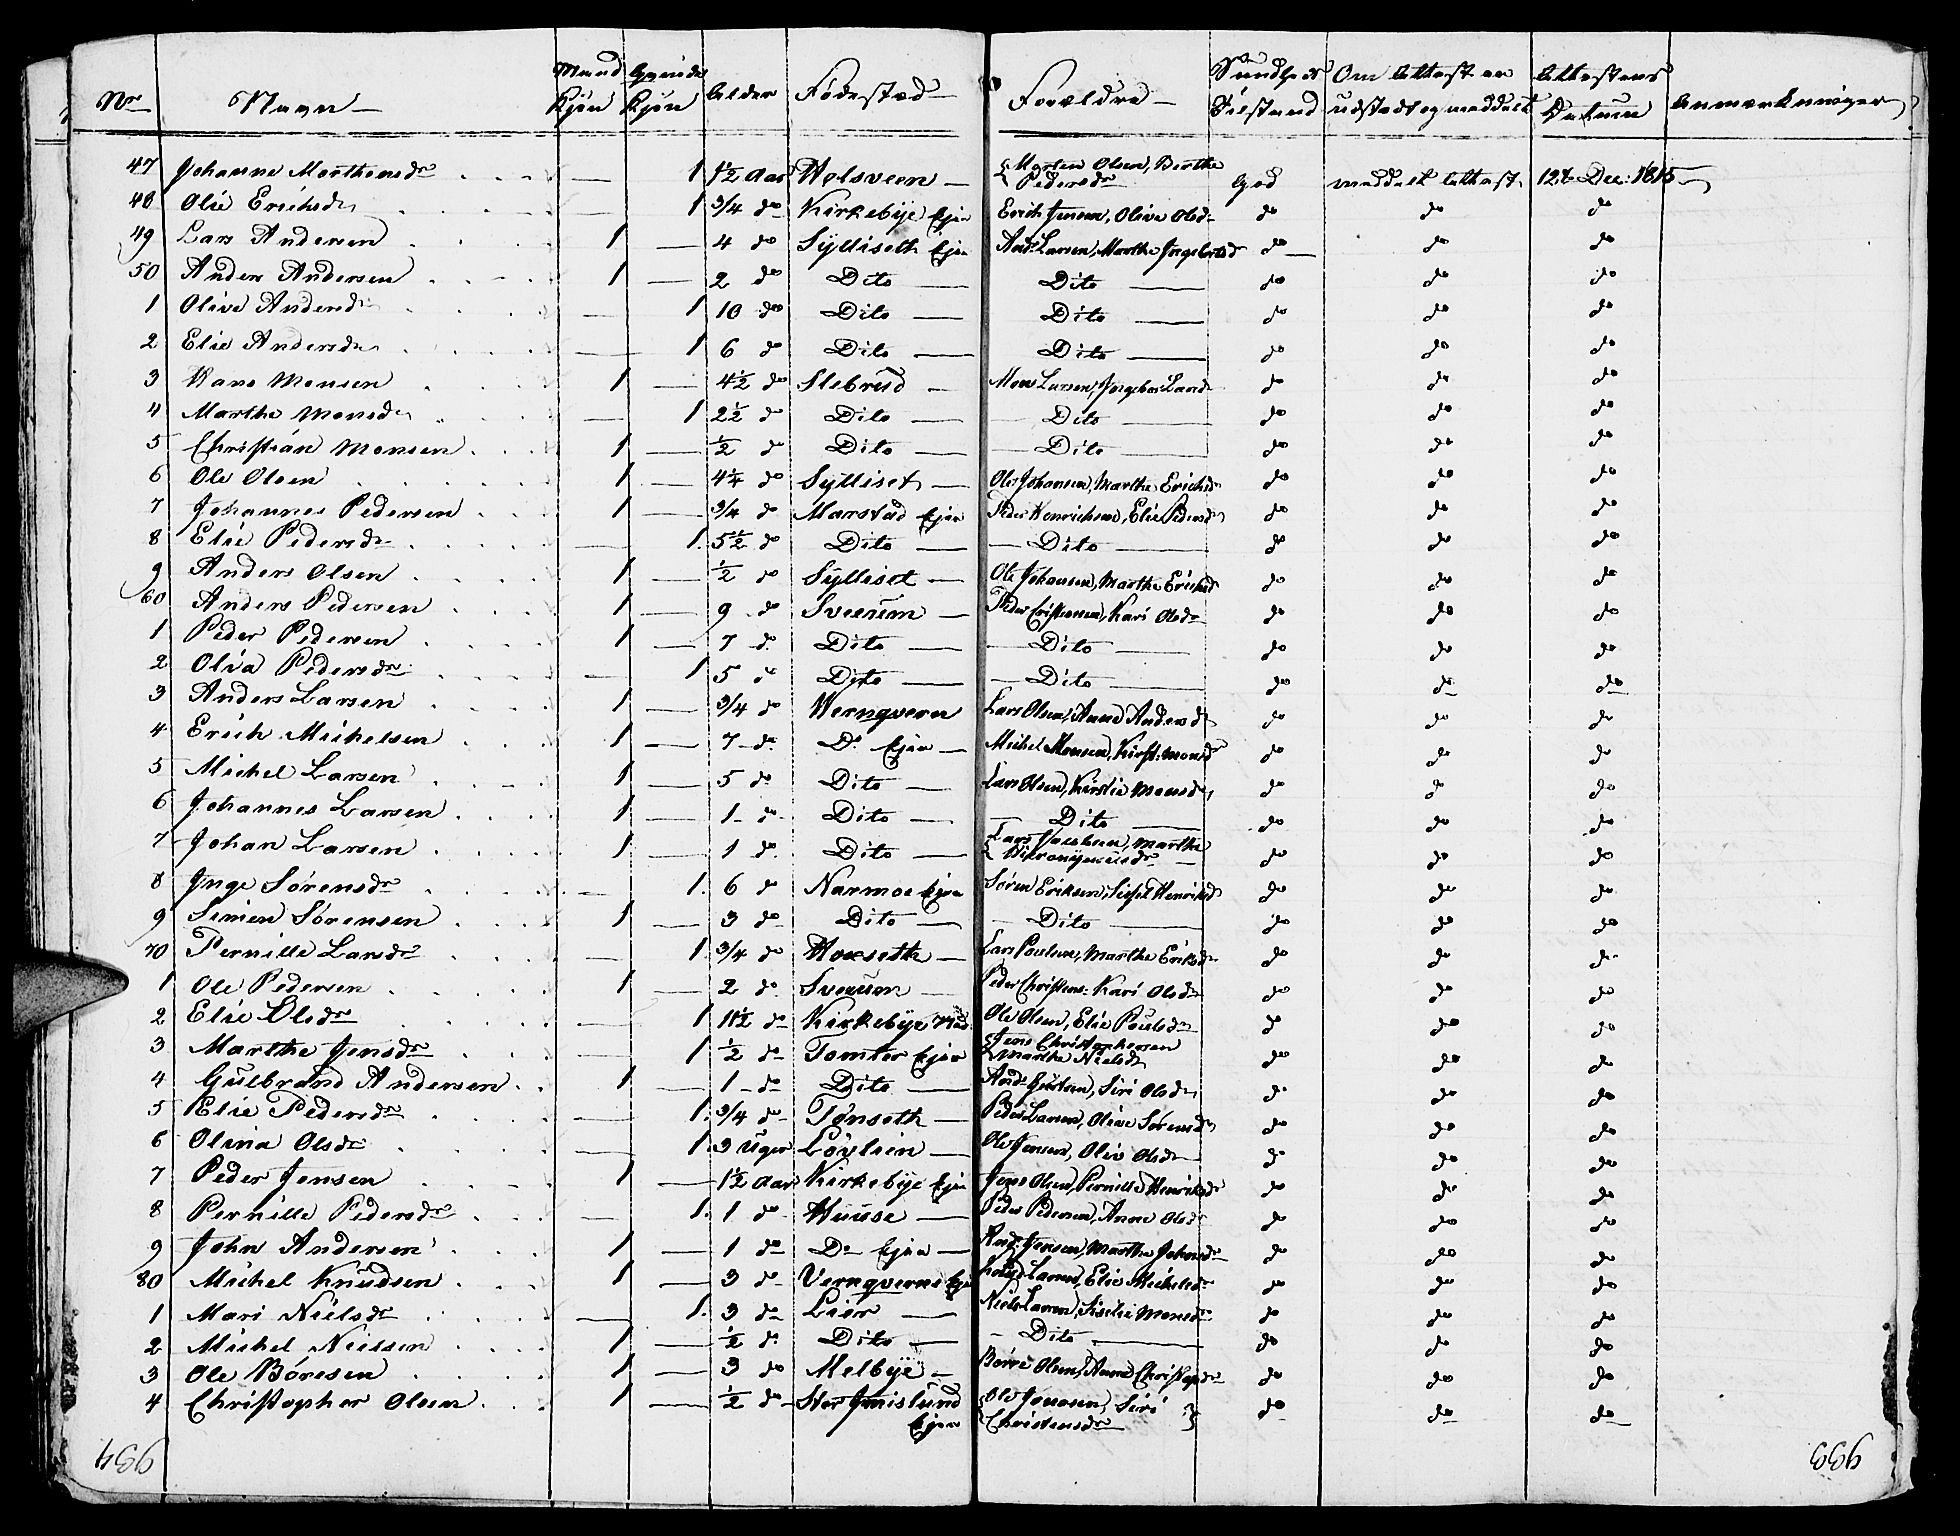 Nr Navn Mand Kjøn Qvinde Kjøn Alder Fødestæd Forældre Sundheds Tilstand Om Attest er udstædt og meddeelt Attestens Datum Anmærkninger
47 Johanne Morthensdr 1 1½ Aar Holsveen {Morten Olsen, Berthe Pedersdr God meddelt Attest 12te Dec: 1815
48 Olie Erichsdr 1 3/4 do Kirkebÿe Ejer Erich Jensen, Olive Olsdr do do do
49 Lars Andersen 1 4 do Sÿlliseth Ejer Ands Larsen, Marthe Ingebrets d do do do
50 Anders Andersen 1 2 do Dito Dito do do do
1 Olive Andersdr 1 10 do Dito Dito do do do
2 Elie Andersdr 1 6 do Dito Dito do do do
3 Hans Monsen 1 4½ do Slebrud Mons Larsen, Ingebor Larsd do do do
4 Marthe Monsdr 1 2½ do Dito Dito do do do
5 Christian Monsen 1 ½ do Dito Dito do do do
6 Ole Olsen 1 4¼ do Sÿlliset Ole Johansen, Marthe Erichsdr do do do
7 Johannes Pedersen 1 3/4 do Marstad Ejer Peder Henrichsen, Elie Pedersdr do do do
8 Elie Pedersdr 1 5½ do Dito Dito do do do
9 Anders Olsen 1 ½ do Sÿlliset Ole Johansen, Marthe Erichsd do do do
60 Anders Pedersen 1 9 do Sveeum Peder Cristensen, Kari Olsdr do do do
1 Peder Pedersen 1 7 do Dito Dito do do do
2 Olia Pedersdr 1 5 do Dito Dito do do do
3 Anders Larsen 1 3/4 do Wernqvern Lars Olsen, Anne Andersdr do do do
4 Erich Michelsen 1 7 do Do Ejer Michel Monsen, Kirst: Monsd do do do
5 Michel Larsen 1 5 do Dito Lars Olsen, Kirstie Monsdr do do do
6 Johannes Larsen 1 1 do Dito Dito do do do
7 Johan Larsen 1 1 do Dito {Lars Jacobsen, Marthe Hieronÿmusdr do do do
8 Inge Sørensdr 1 6 do Narmoe Ejer Søren Eriksen, Sissel Henriksd do do do
9 Simen Sørensen 1 3 do Dito Dito do do do
70 Pernille Larsdr 1 3/4 do Hovseth Lars Poulsen, Marthe Eriksdr do do do
1 Ole Pedersen 1 2 do Sveeum Peder Christens: Kari Olsdr do do do
2 Elie Olsdr 1 11½ do Kirkebÿe Ole Olsen, Elie Poulsdr do do do
3 Marthe Jensdr 1 ½ do Tomter Ejer {Jens Christophersen Marthe Nielsdr do do do
4 Gulbrand Andersen 1 1 do Dito Siri Olsdr do do do
5 Elie Pedersdr 1 3/4 do Tønseth Peder Larsen, Olive Sørensdr do do do
6 Olina Olsdr 1 3 Uger Løÿlien Ole Jensen, Olie Olsdr do do do
7 Peder Jensen 1 1½ Aar Kirkebÿe Ejer Jens Olsen, Pernille Henriksdr do do do
8 Pernille Pedersdr 1 1 do Huuse Peder Pedersen, Anne Olsdr do do do
9 John Andersen 1 1 do Do Ejer Ands Jensen, Marthe Johnsdr do do do
80 Michel Knudsen 1 3 do Vernqverns Ejer Larsen, Elie Michelsdr do do do
1 Mari Nielsdr 1 3 do Lier Niels Larsen, Siselie Monsdr do do do
2 Michel Nielsen 1 ½ do Dito Dito do do do
3 Ole Børesen 1 3 do Melbÿe Børre Olsen, Anne Christophdr do do do
4 Christopher Olsen 1 ½ do Stor Imislund Ejer {Ole Jonasen, Siri Christensdr} do do do
934 933